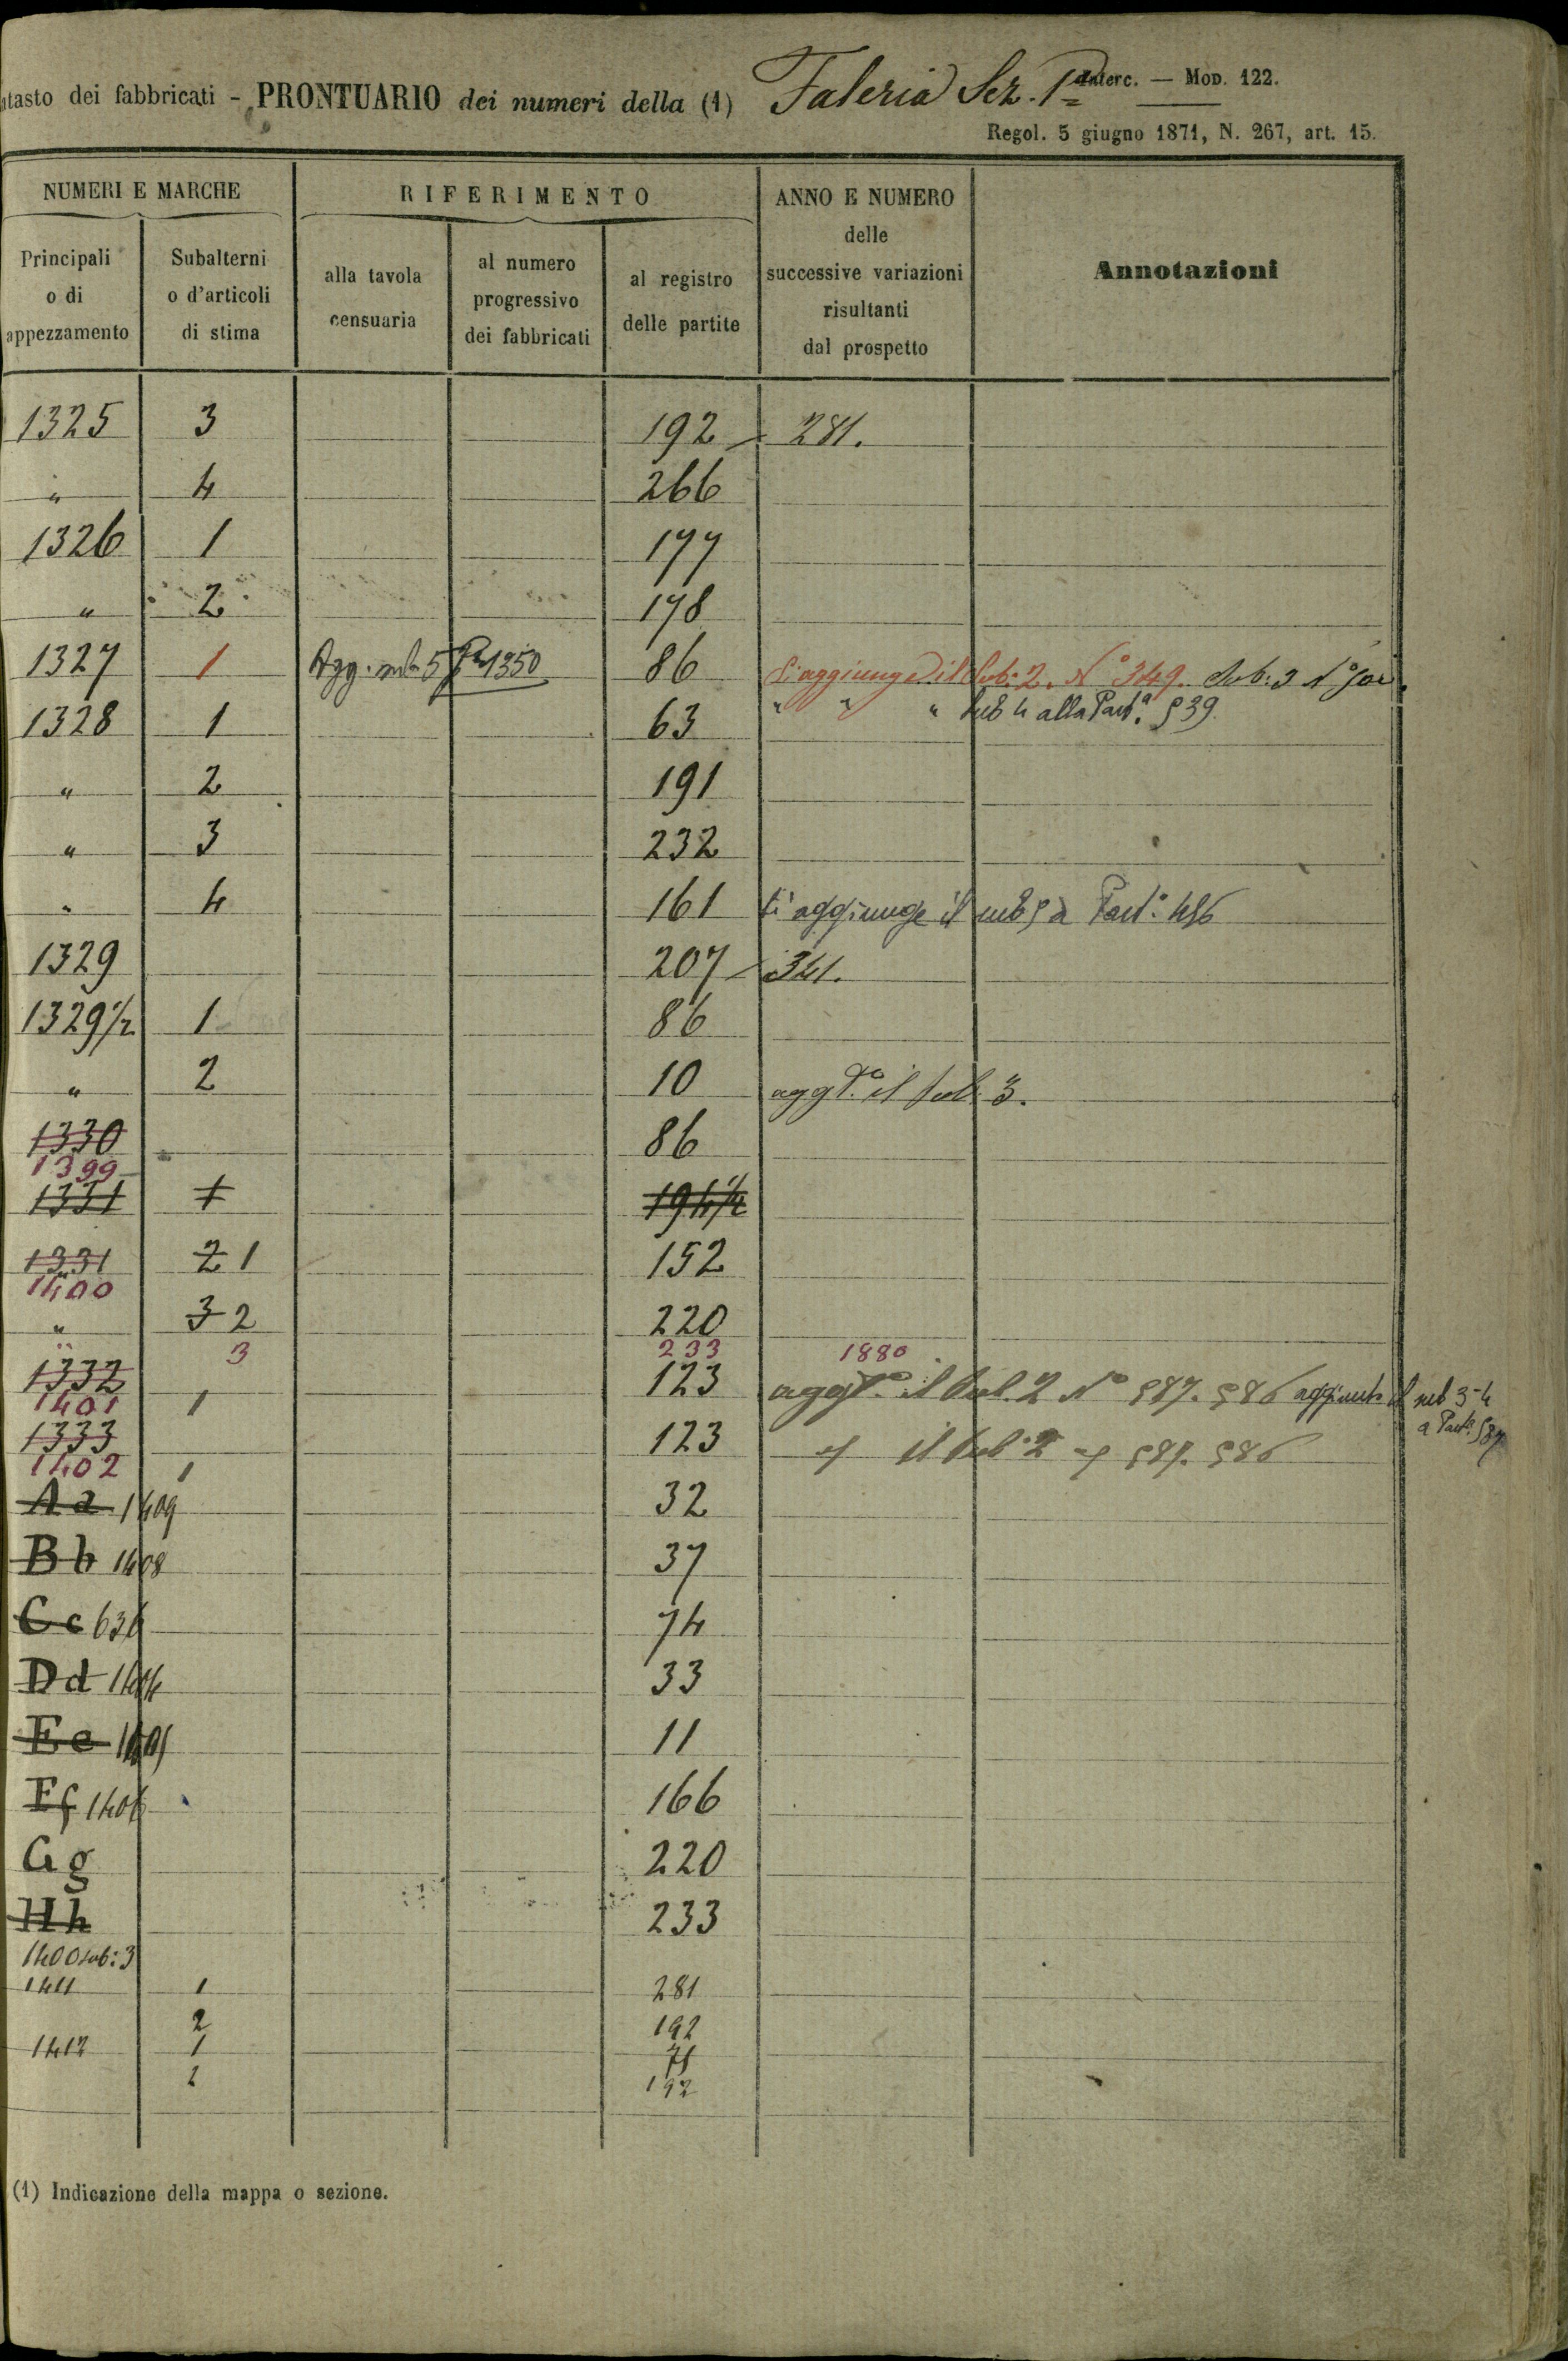 atasto dei fabbricati - PRONTUARIO dei numeri della (1) Faleria Sez. 1ª
Caterc. — Mod. 122.
Regol. 5 giugno 1871, N. 267, art. 15.
NUMERI E MARCHE
RIFERIMENTO
ANNO E NUMERO
delle
successive variazioni
risultanti
dal prospetto
Annotazioni
Principali
o di
appezzamento
Subalterni
o d'articoli
di stima
alla tavola
censuaria
al numero
progressivo
dei fabbricati
al registro
delle partite
1325 3 192 281.
" 4 266
1326 1 177
" 2 178
1327 1 Agg. sub 5 Pª 1350 86 S'aggiunge il Sub: 2. Nº 349. Sub: 3 Nº
1328 1 63 " " " Sub 4 alla Partª 539.
" 2 191
" 3 232
" 4 161 Si aggiunge il sub 5 à Partª 486
1329 207 341.
1329 1/2 1 86
" 2 10 aggtº il sub. 3.
1330 86
1399
1331 1 194 1/2
1331 2 1 152
1400
" 3 2 220
" 3 233 1880
1332 123 aggtº il Sub. 2 Nº 587. 586 aggiunto il sub 3-4
1401 1 a Partª 587
1333 123 il Sub. 2 587. 586
1402 1
Aa 1409 32
Bb 1408 37
Cc 636 74
Dd 1404 33
Ee 1405 11
Ff 1406 166
Gg 220
Hh 233
1400 sub: 3
1411 1 281
2 192
1412 1 71
2 192
(1) Indicazione della mappa o sezione.